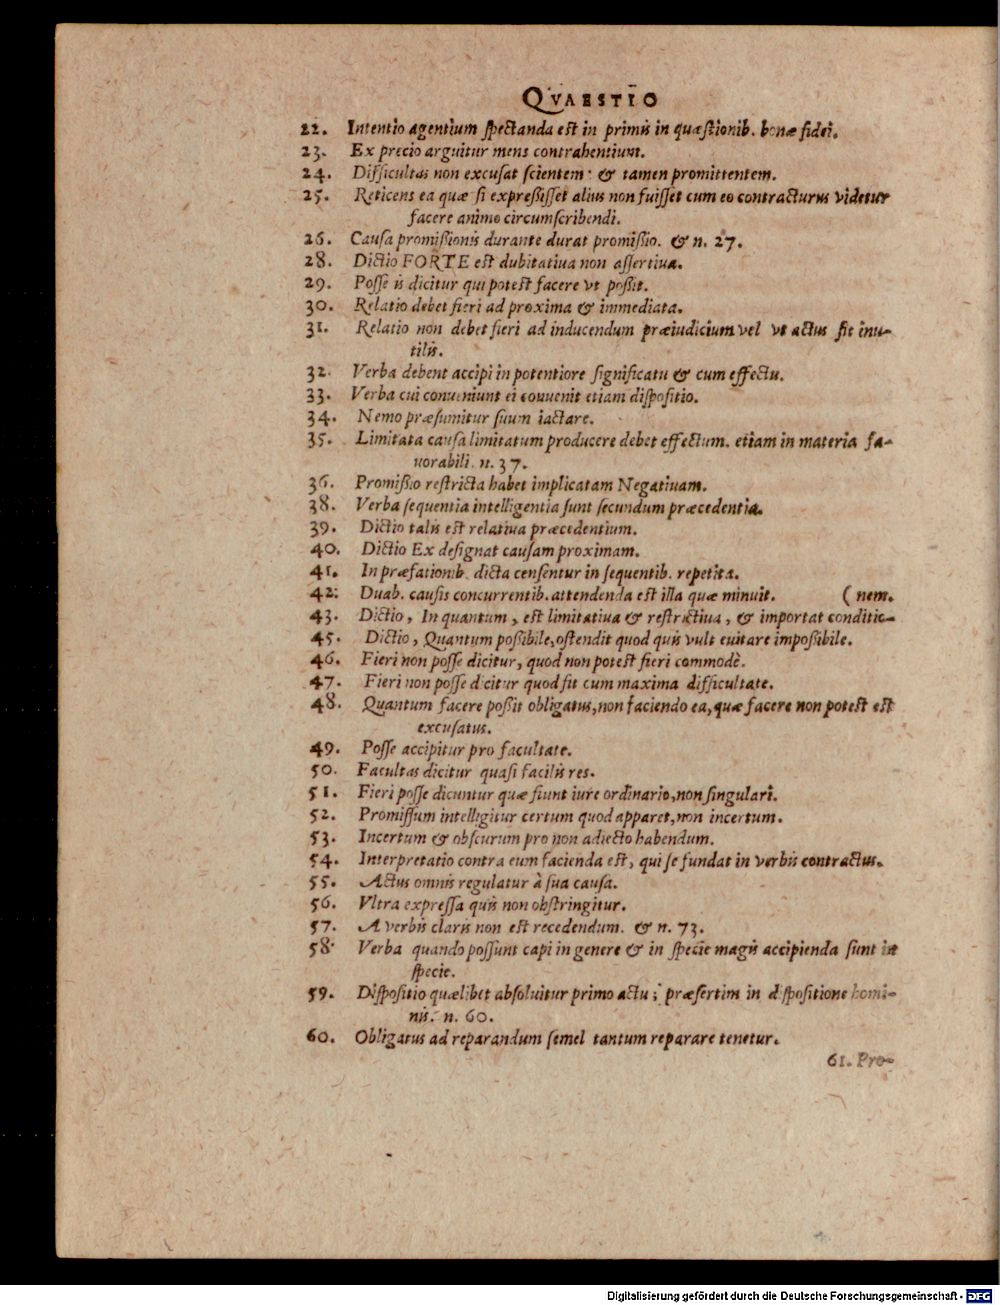 QVAESTIO
22. Intentio agentium spectanda est in primis in quæstionib. bonæ fidei.
23. Ex precio arguitur mens contrahentium.
24. Difficultas non excusat scientem & tamen promittentem.
25. Reticens ea quæ si expressisset alius non fuisset cum eo contracturus videtur
facere animo circumscribendi.
26. Causa promissionis durante durat promissio. & n. 27.
28. Dictio FORTE est dubitatiua non assertiua.
29. Posse is dicitur qui potest facere vt possit.
30. Relatio debet fieri ad proxima & immediata.
31. Relatio non debet fieri ad inducendum præiudicium vel vt actus sit inu-
tilis.
32. Verba debent accipi in potentiore significatu & cum effectu.
33. Verba cui conueniunt ei conuenit etiam dispositio.
34. Nemo præsumitur suum iactare.
35. Limitata causa limitatum producere debet effectum. etiam in materia fa-
uorabili. n. 37.
36. Promissio restricta habet implicatam Negatiuam.
38. Verba sequentia intelligentia sunt secundum præcedentia.
39. Dictio talis est relatiua præcedentium.
40. Dictio Ex designat causam proximam.
41. In præfationib. dicta censentur in sequentib. repetita.
42. Duab. causis concurrentib. attendenda est illa quæ minuit. (nem.
43. Dictio, In quantum, est limitatiua & restrictiua, & importat conditio-
45. Dictio, Quantum possibile, ostendit quod quis vult euitare impossibile.
46. Fieri non posse dicitur, quod non potest fieri commodè.
47. Fieri non posse dicitur quod fit cum maxima difficultate.
48. Quantum facere possit obligatus, non faciendo ea, quæ facere non potest est
excusatus.
49. Posse accipitur pro facultate.
50. Facultas dicitur quasi facilis res.
51. Fieri posse dicuntur quæ fiunt iure ordinario, non singulari.
52. Promissum intelligitur certum quod apparet, non incertum.
53. Incertum & obscurum pro non adiecto habendum.
54. Interpretatio contra eum facienda est, qui se fundat in verbis contractus.
55. Actus omnis regulatur à sua causa.
56. Vltra expressa quis non obstringitur.
57. A verbis claris non est recedendum. & n. 73.
58. Verba quando possunt capi in genere & in specie magis accipienda sunt in
specie.
59. Dispositio quælibet absoluitur primo actu; præsertim in dispositione homi-
nis. n. 60.
60. Obligatus ad reparandum semel tantum reparare tenetur.
61. Pro-
Digitalisierung gefördert durch die Deutsche Forschungsgemeinschaft - DFG